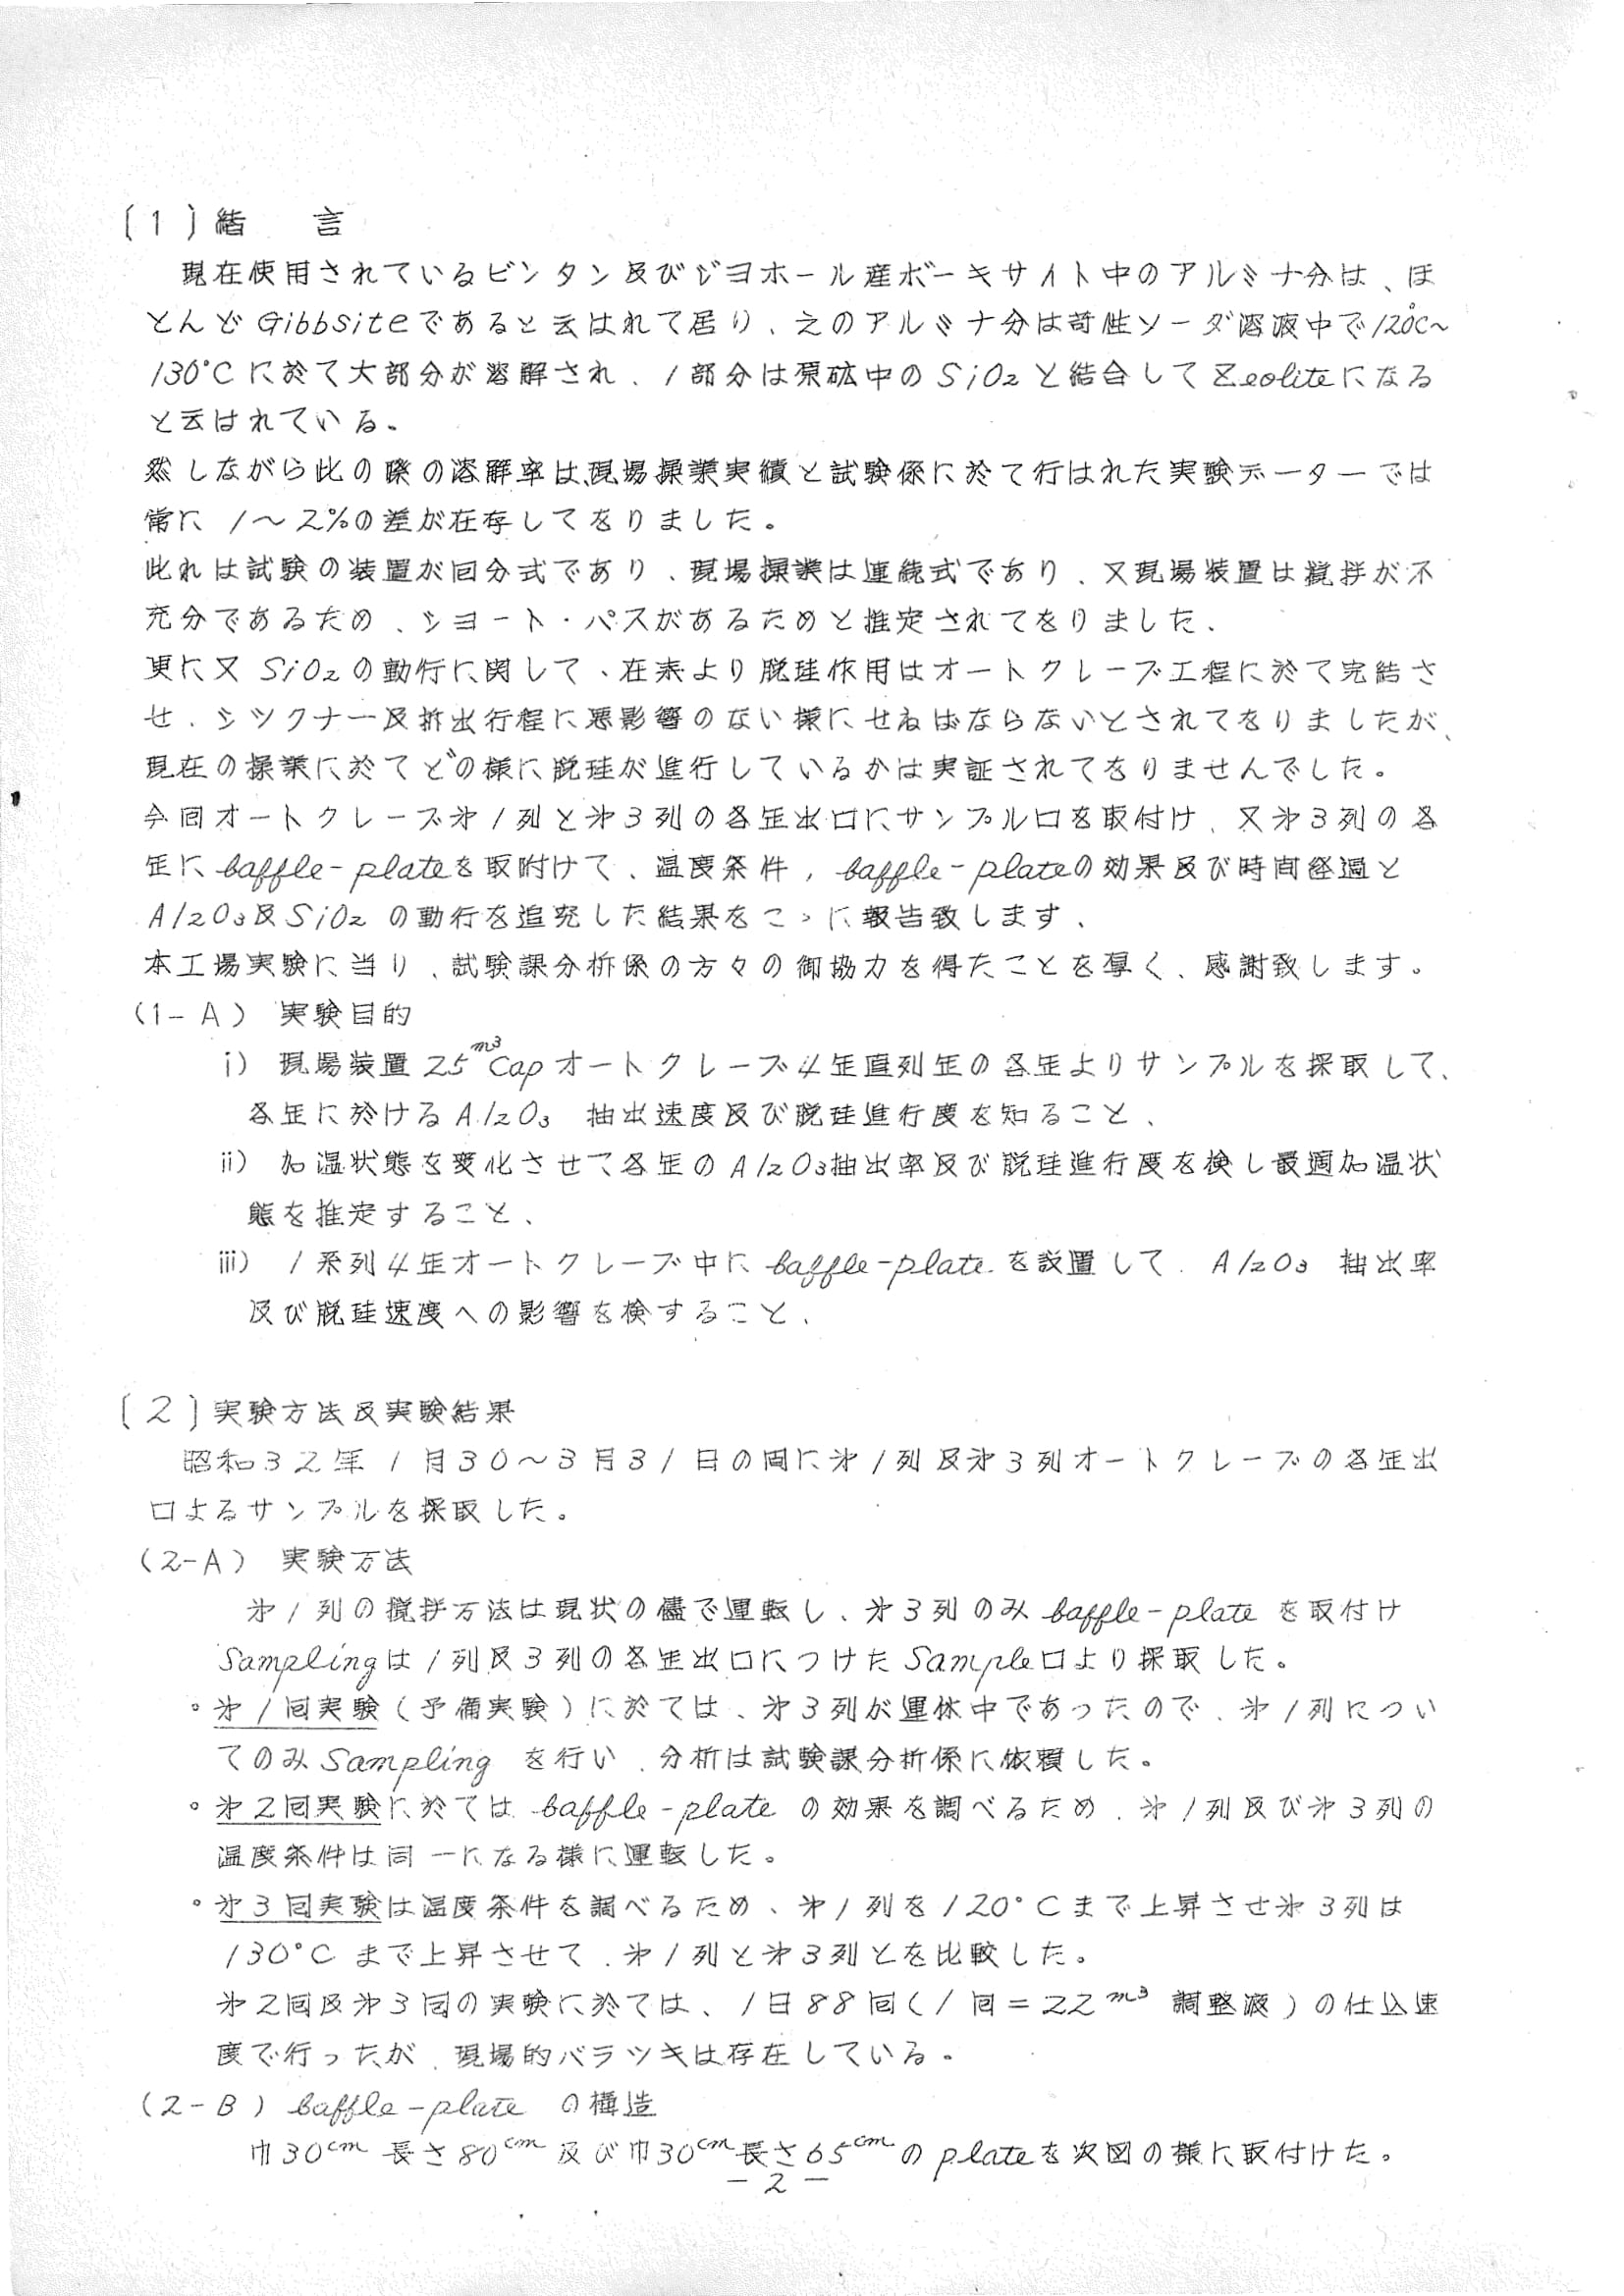 〔1〕緒　言
現在使用されているビンタン及びジヨホール産ボーキサイト中のアルミナ分は、ほ
とんどGibbsiteであると云はれて居り、之のアルミナ分は苛性ソーダ溶液中で120℃~
130°Cに於て大部分が溶解され、1部分は原砿中のSiO₂と結合してZeoliteになる
と云はれている。
然しながら此の際の溶解率は、現場操業実績と試験係に於て行はれた実験データーでは
常に 1～2%の差が在存してをりました。
此れは試験の装置が回分式であり、現場操業は連続式であり、又現場装置は撹拌が不
充分であるため、シヨート・パスがあるためと推定されてをりました、
更に又 SiO₂の動行に関して、在来より脱珪作用はオートクレーブ工程に於て完結さ
せ、シツクナー及折出行程に悪影響のない様にせねばならないとされてをりましたが、
現在の操業に於てどの様に脱珪が進行しているかは実証されてをりませんでした。
今回オートクレーブ㐧1列と㐧3列の各缶出口にサンプル口を取付け、又㐧3列の各
缶に baffle-plateを取附けて、温度条件, baffle-plateの効果及び時間経過と
Al₂O₃及SiO₂ の動行を追究した結果をこゝに報告致します、
本工場実験に当り、試験課分析係の方々の御協力を得たことを厚く、感謝致します。
(1-A) 実験目的
i) 現場装置 25m³Capオートクレーブ4缶直列缶の各缶よりサンプルを採取して、
各缶に於けるAl₂O₃ 抽出速度及び脱珪進行度を知ること、
ii) 加温状態を変化させて各缶のAl₂O₃抽出率及び脱珪進行度を検し最適加温状
態を推定すること、
iii) 1系列4缶オートクレーブ中に baffle-plate を設置して、Al₂O₃ 抽出率
及び脱珪速度への影響を検すること、
〔2〕実験方法及実験結果
昭和32年1月30～3月31日の間に㐧1列及㐧3列オートクレーブの各缶出
口よるサンプルを採取した。
(2-A) 実験方法
㐧1列の撹拌方法は現状の儘で運転し、㐧3列のみ baffle-plate を取付け
Samplingは1列及3列の各缶出口につけたSample口より採取した。
◦㐧1回実験(予備実験)に於ては、㐧3列が運休中であったので、㐧1列につい
てのみSampling を行い、分析は試験課分析係に依頼した。
◦㐧2回実験に於ては baffle-plate の効果を調べるため、㐧1列及び㐧3列の
温度条件は同一になる様に運転した。
◦㐧3回実験は温度条件を調べるため、㐧1列を120°Cまで上昇させ㐧3列は
130°C まで上昇させて、㐧1列と㐧3列とを比較した。
㐧2回及㐧3回の実験に於ては、1日88回(1回=22m³ 調整液)の仕込速
度で行ったが、現場的バラツキは存在している。
(2-B) baffle-plate の構造
巾30cm 長さ80cm 及び巾30cm長さ65cmのplateを次図の様に取付けた。
-2-